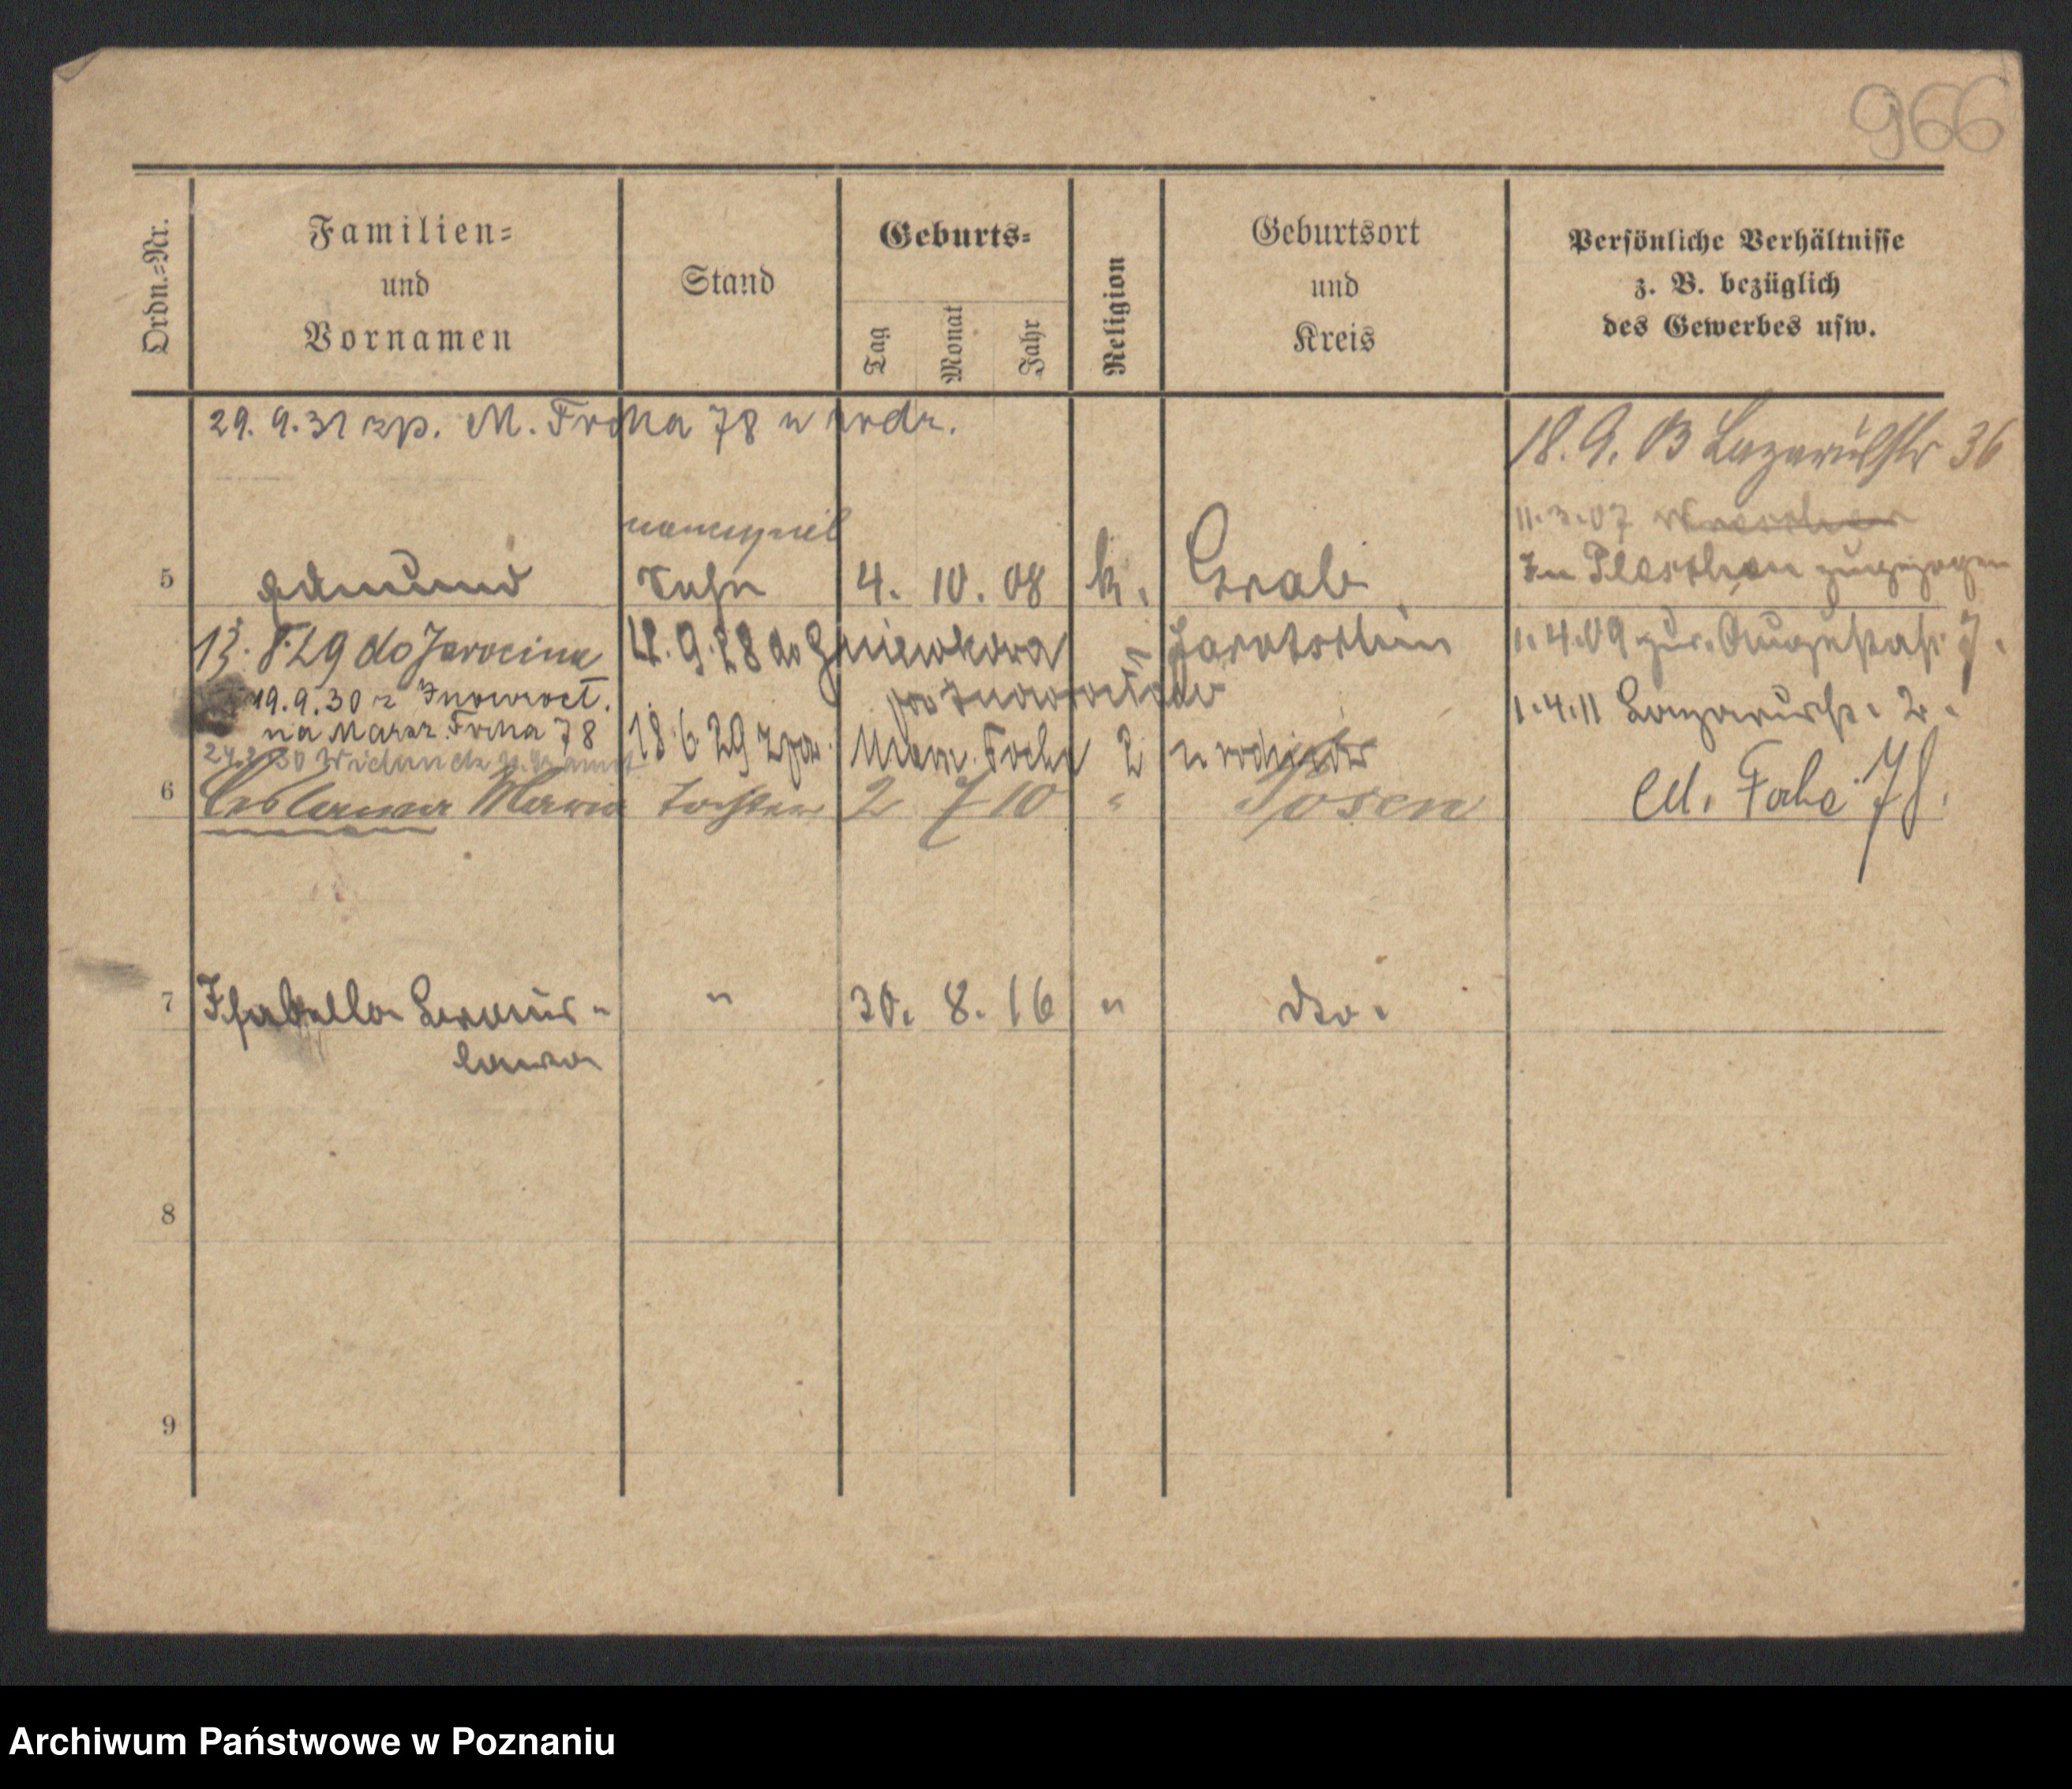 966
Ordn.=Nr.
Familien=
und
Vornamen
Stand
Geburts=
Tag
Monat
Jahr
Religion
Geburtsort
und
Kreis
Persönliche Verhältnisse
z. B. bezüglich
des Gewerbes usw.
29. 9. 31 zp. M. Focha 78 u rodz.
18. 9. 03 Lazarusstr 36
11.3.07
nauczyciel
In Pleschen zugezogen
5 Edmund Sohn 4. 10. 08 k. Grab
13. 8.29 do Jarocina 4.9.28 do Gniewkowa Jarotschin 1.4.09 zur. Augustastr 7.
19.9.30 z Inowrocł. 1.4.11 Lazarusstr. 2.
na Marsz. Focha 78 18.6.29 Marsz. Focha 2 u rodziców
24.
6 Czesława Maria Tochter 2 7 10 " Posen Ed. Focha 78.
7 Isabella Bronis- " 30. 8. 16 " dto.
lawa
8
9
Archiwum Państwowe w Poznaniu